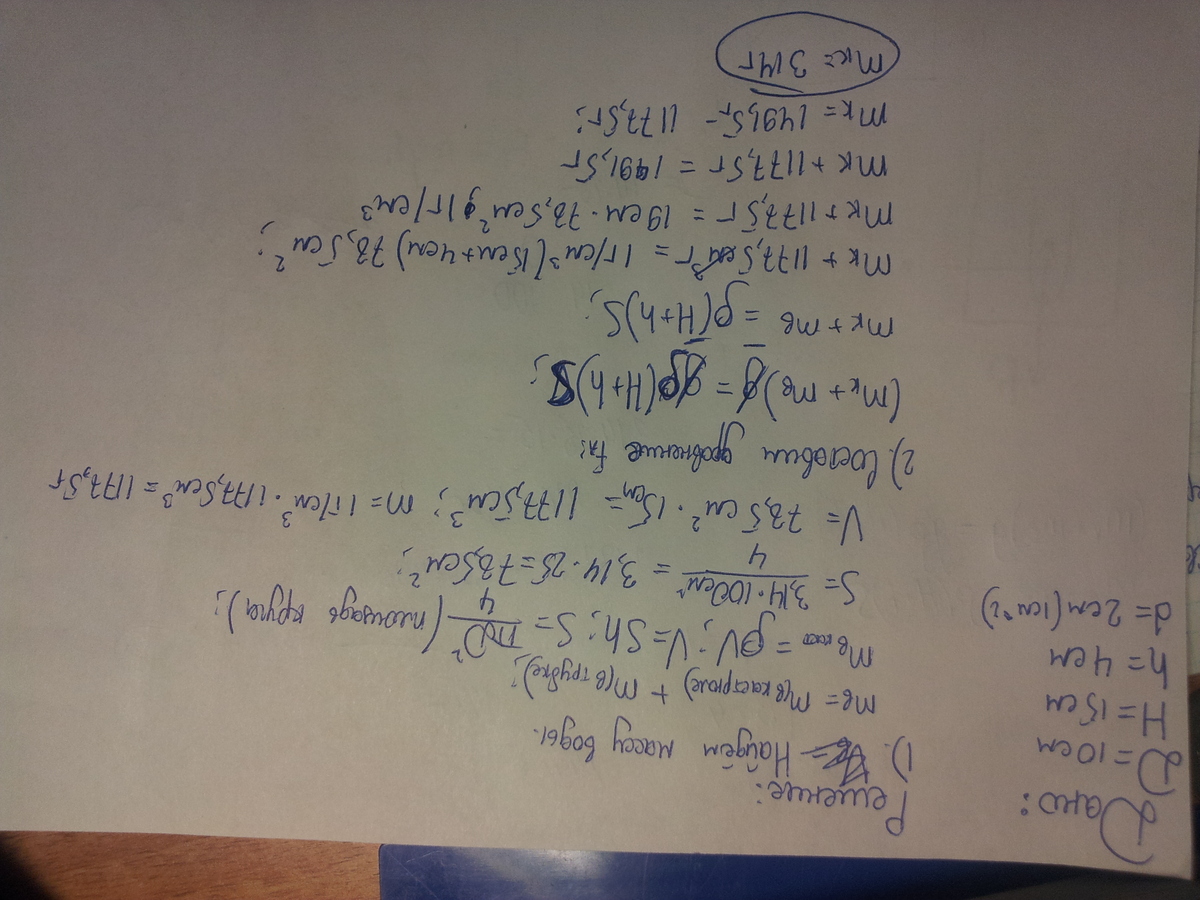 Дано:
D = 10см
H = 15см
h = 4см
d = 2см (1см^2)
Решение:
1). Найдём массу воды.
mв = m(в кастрюле) + m(в трубке);
mв = ρV; V = Sh; S = πD²/4 (площадь круга);
S = 3,14·100см²/4 = 3,14·25 = 78,5см²;
V = 78,5см²·15см = 1177,5см³; m = 1г/см³·1177,5см³ = 1177,5г
2). Составим уравнение Fд:
(mк + mв)g = gρ(H+h)S;
mк + mв = ρ(H+h)S;
mк + 1177,5г = 1г/см³(15см+4см)78,5см²;
mк + 1177,5г = 19см·78,5см²·1г/см³
mк + 1177,5г = 1491,5г
mк = 1491,5г - 1177,5г;
mк = 314г